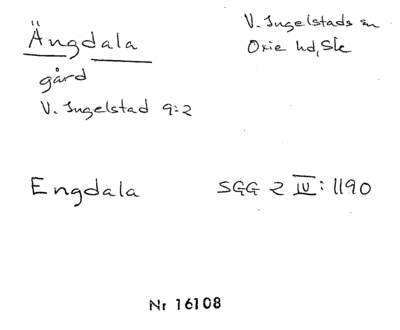 Ängdala
V. Ingelstads sn
Oxie hd, Sk
gård
V. Ingelstad 9:2
Engdala
SGG 2 IV: 1190
Nr 16108